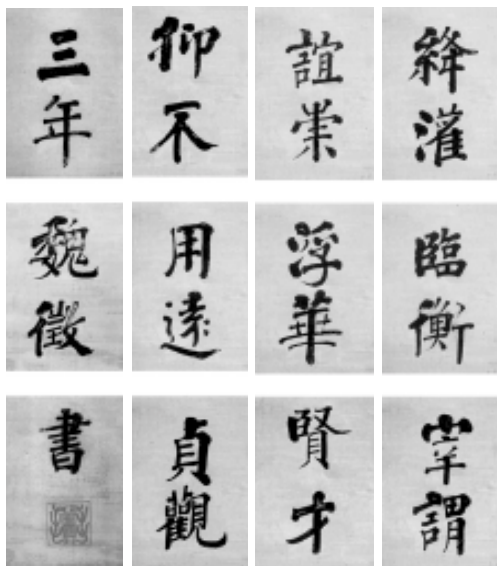 絳灌
臨衡
宰謂
誼崇
浮華
賢才
抑不
用遠
貞觀
三年
魏徵
書